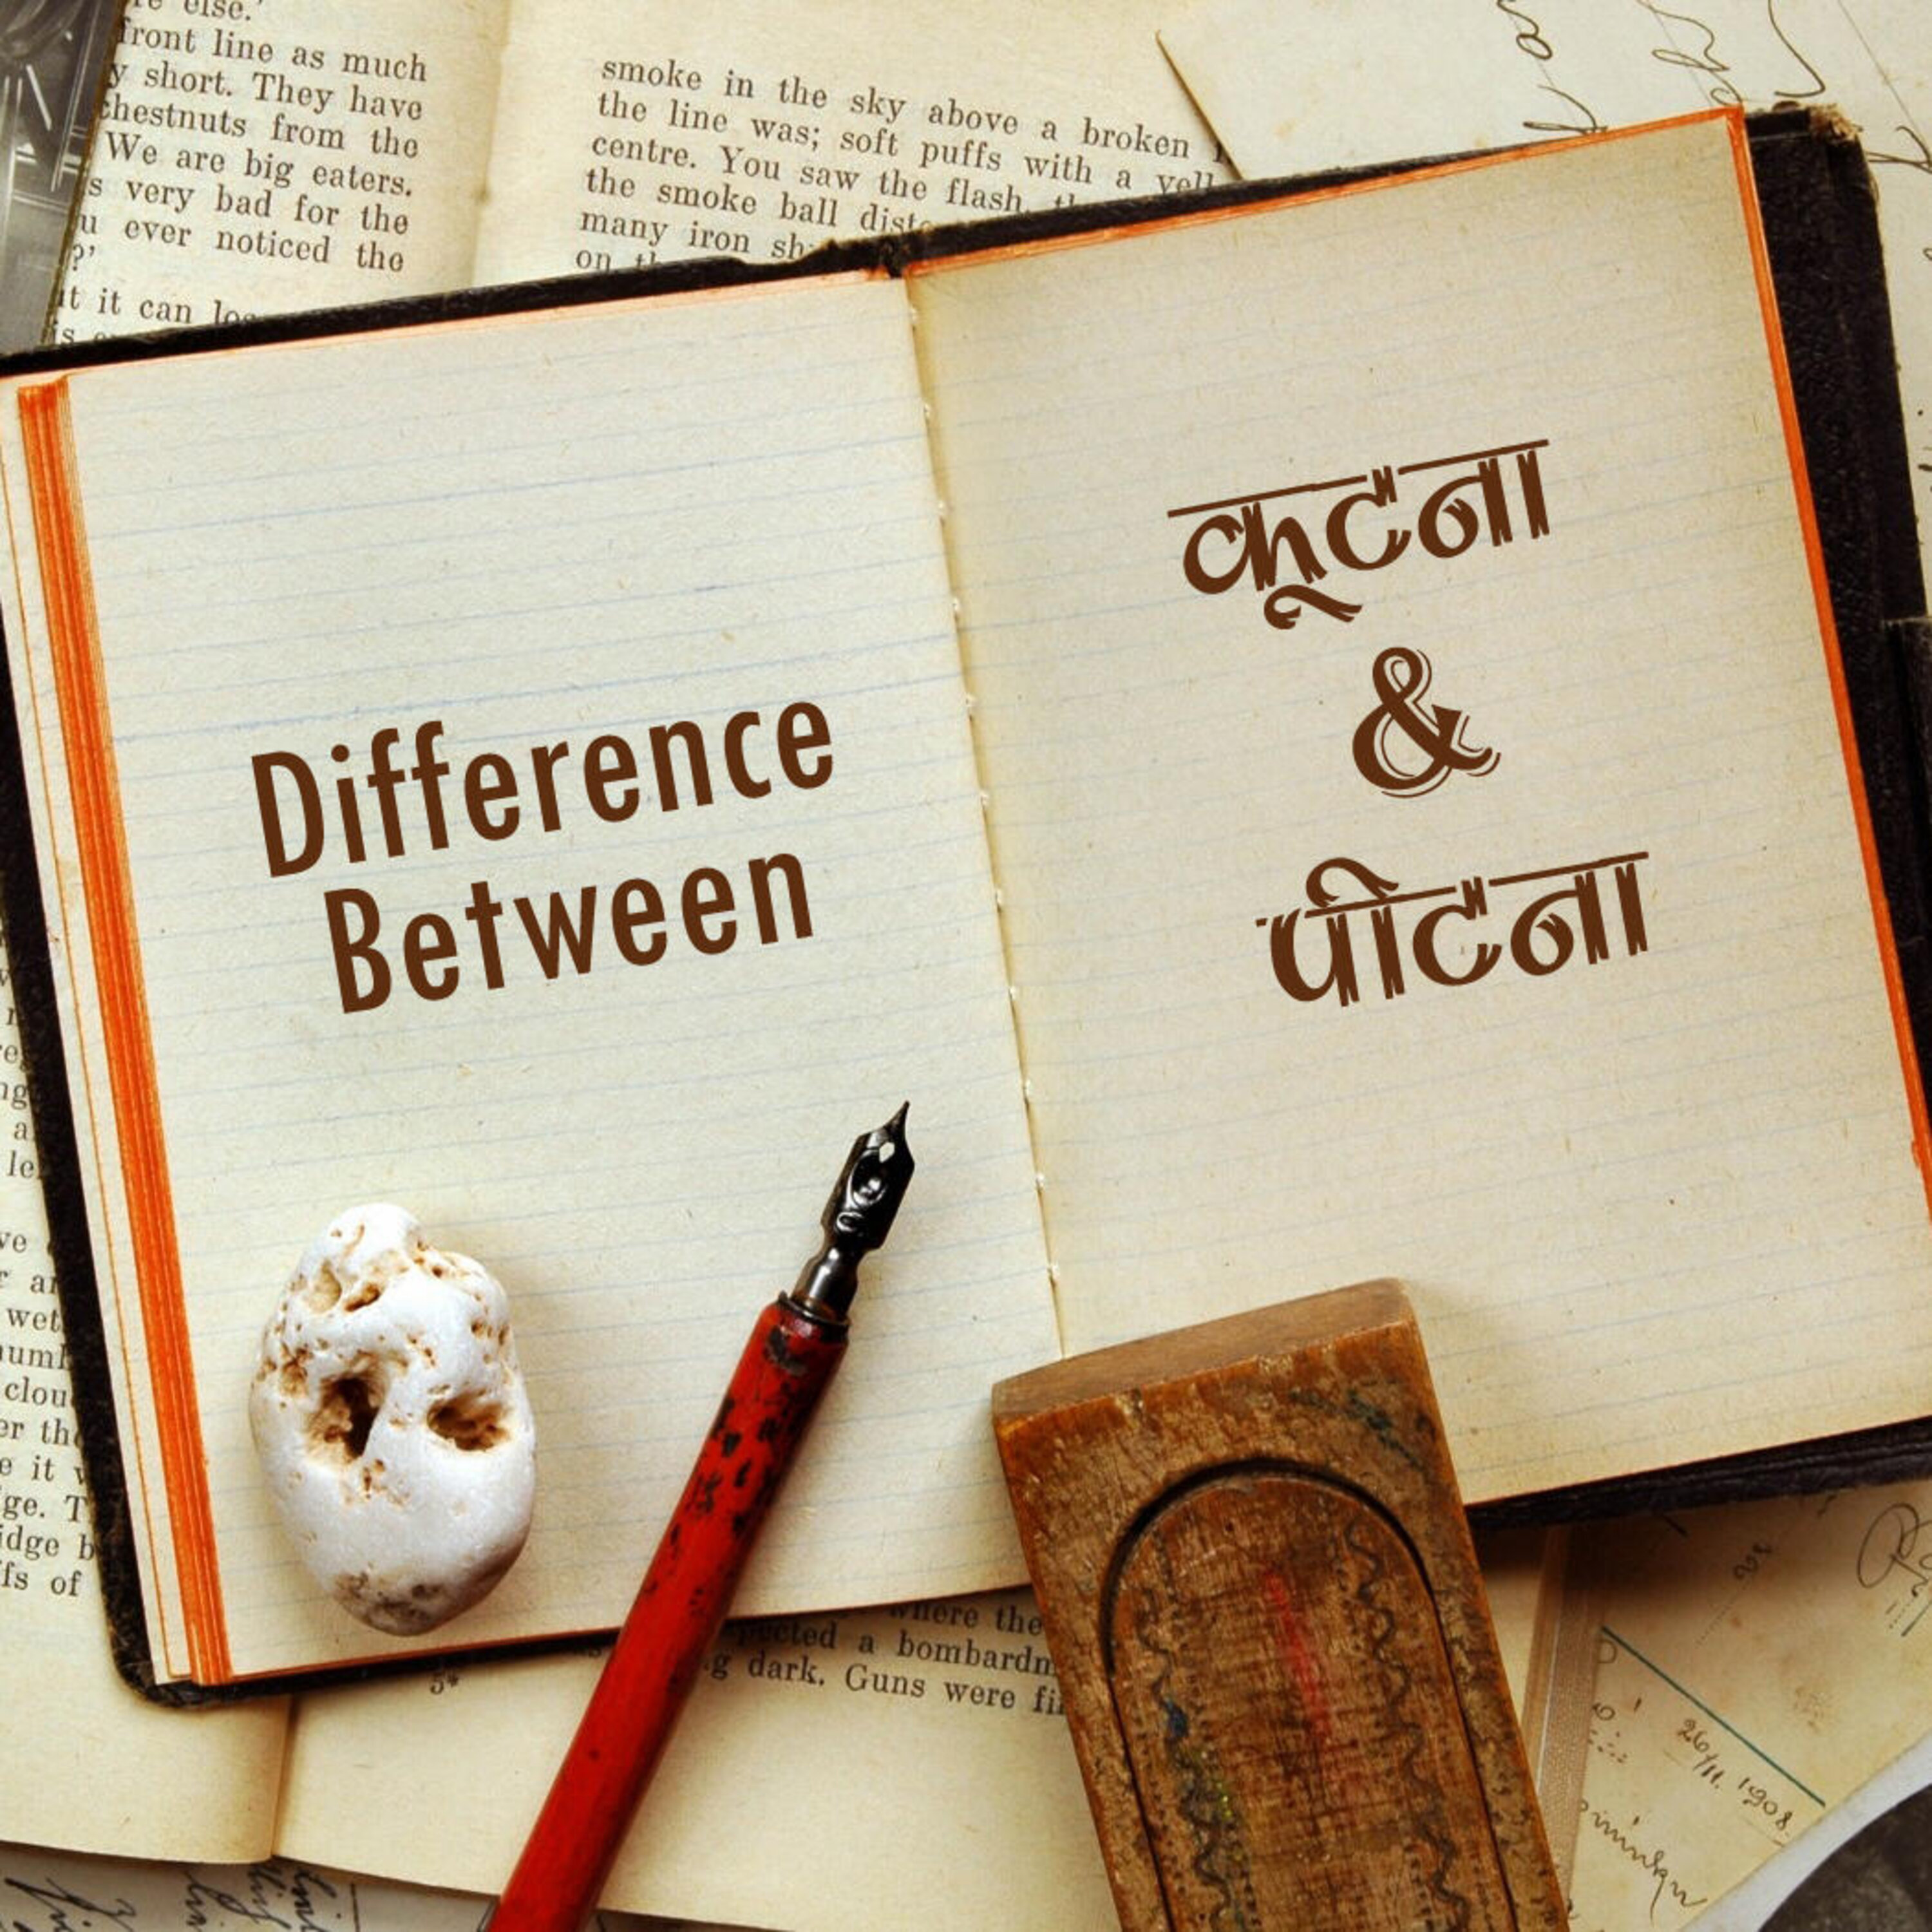 re else.'
front line as much
y short. They have
chestnuts from the
We are big eaters.
s very bad for the
u ever noticed the
?'
it it can
smoke in the sky above a broken
the line was; soft puffs with a
centre. You saw the flash,
the smoke ball
many iron
on
Difference
Between
कूटना
&
पीटना
a
le
wet
clou
er
e it
ge. T
idge b
fs of
where the
a bombardm
dark. Guns were
5*
26/11. 1908